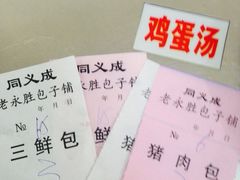 鸡蛋汤
同义成
老永胜包子铺
年 月 日
№
三鲜包
同义成
老永胜包子铺
年 月 日
同义成
老永胜包子铺
年 月 日
№
猪肉包
猪